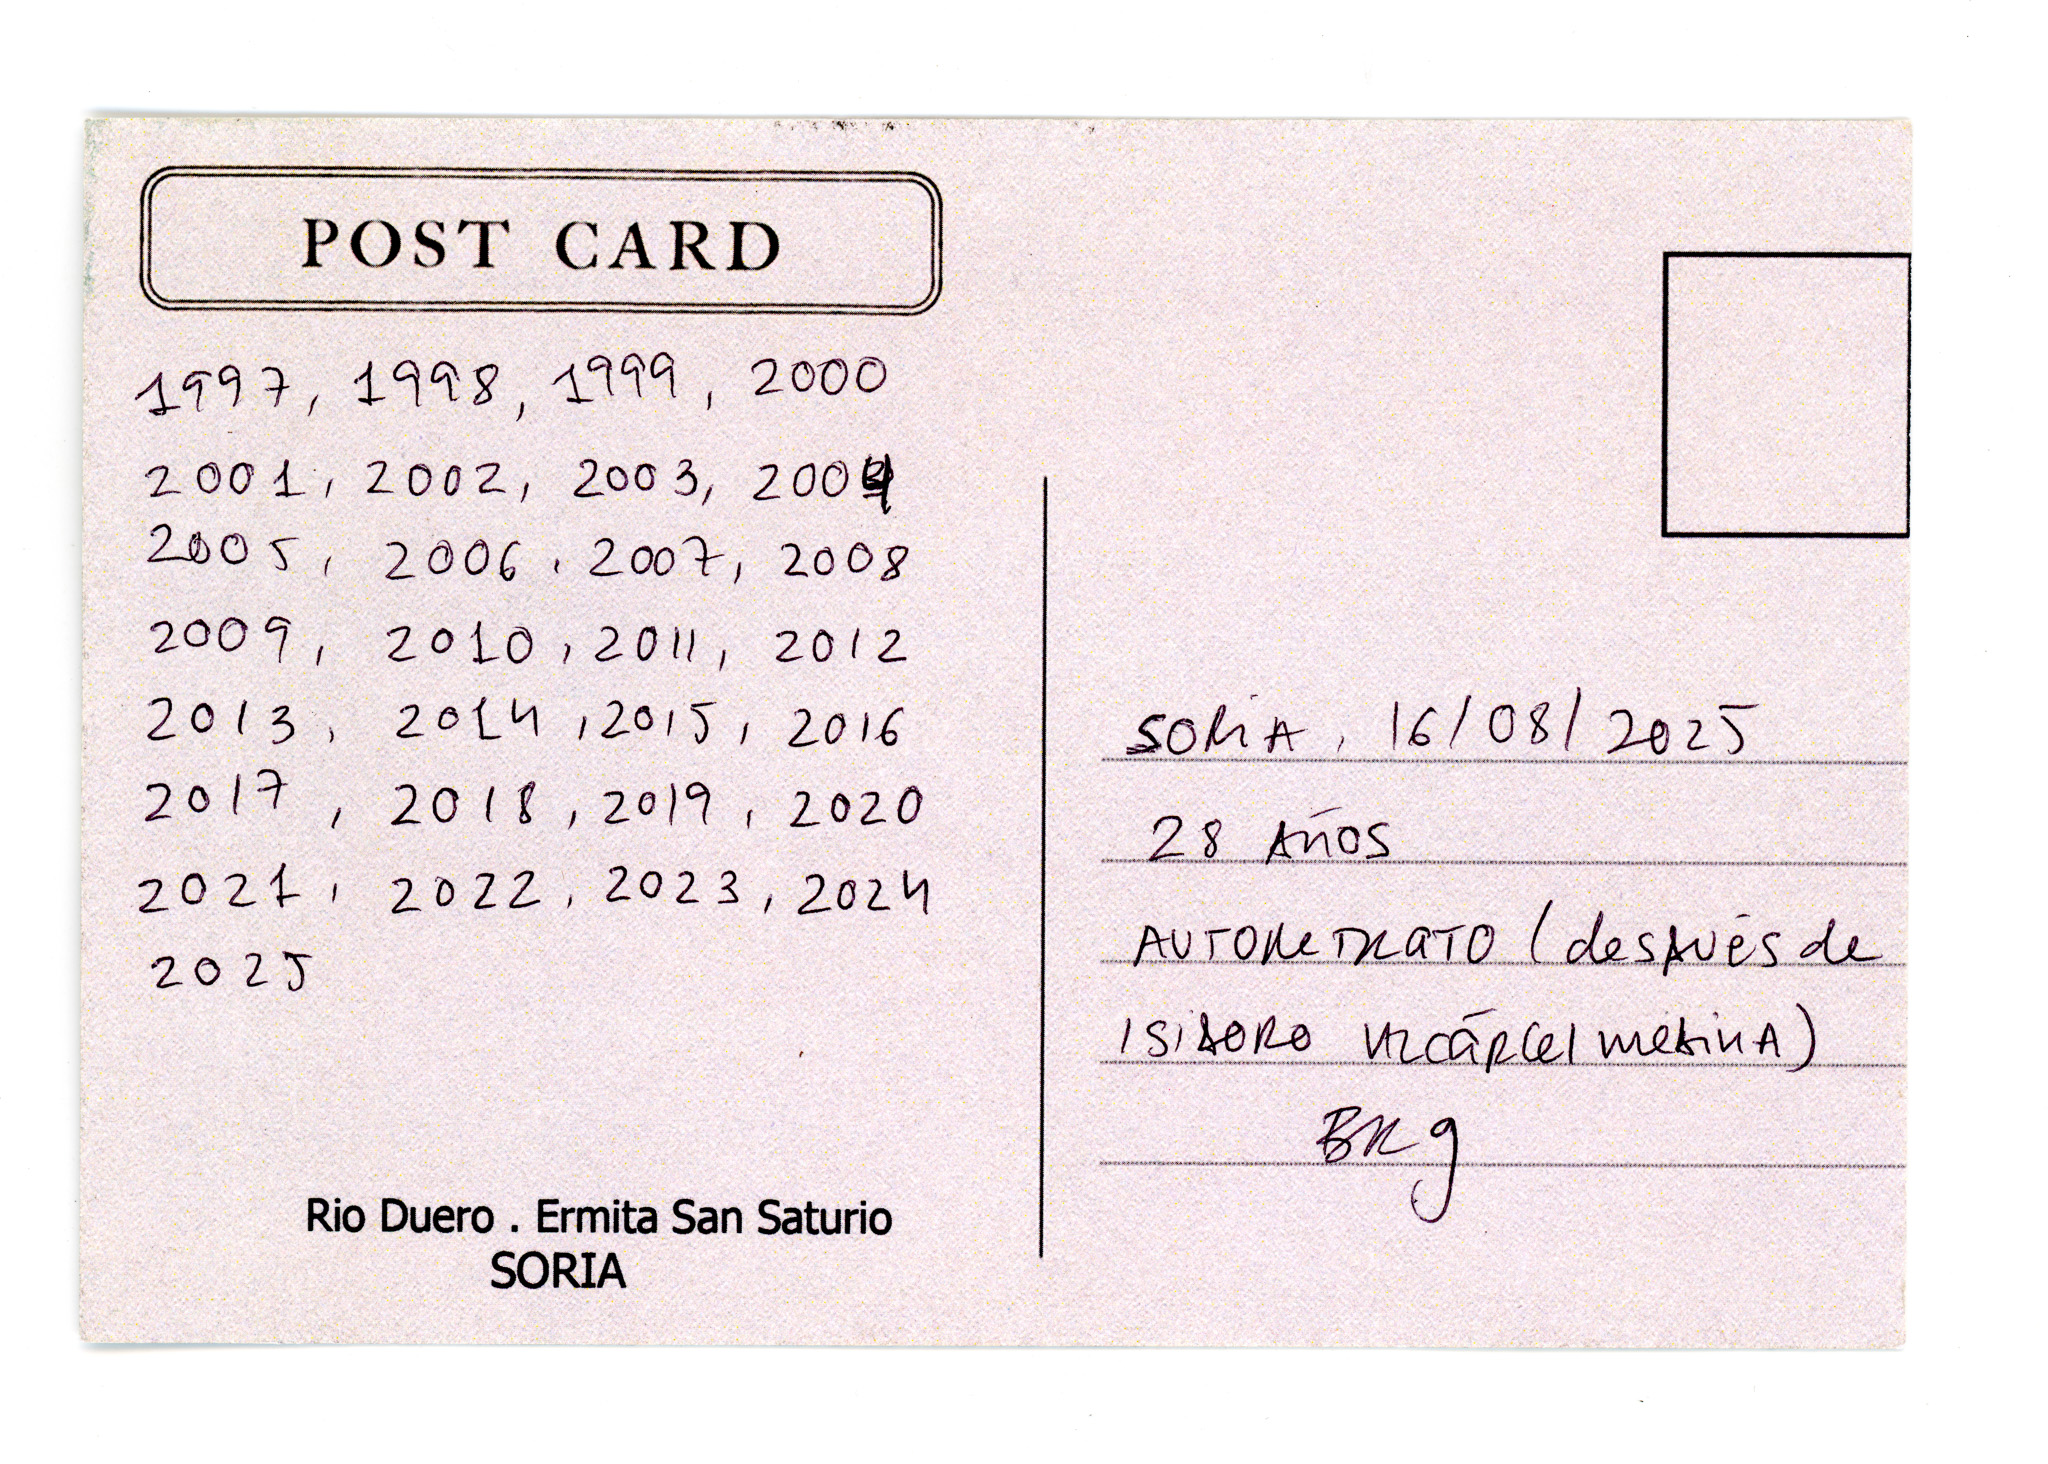 POST CARD
1997, 1998, 1999, 2000
2001, 2002, 2003, 2004
2005, 2006, 2007, 2008
2009, 2010, 2011, 2012
2013, 2014, 2015, 2016
2017, 2018, 2019, 2020
2021, 2022, 2023, 2024
2025
Rio Duero . Ermita San Saturio
SORIA
SORIA, 16/08/2025
28 AÑOS
AUTORRETRATO (después de
ISIDORO VALCÁRCEL MEDINA)
BRG